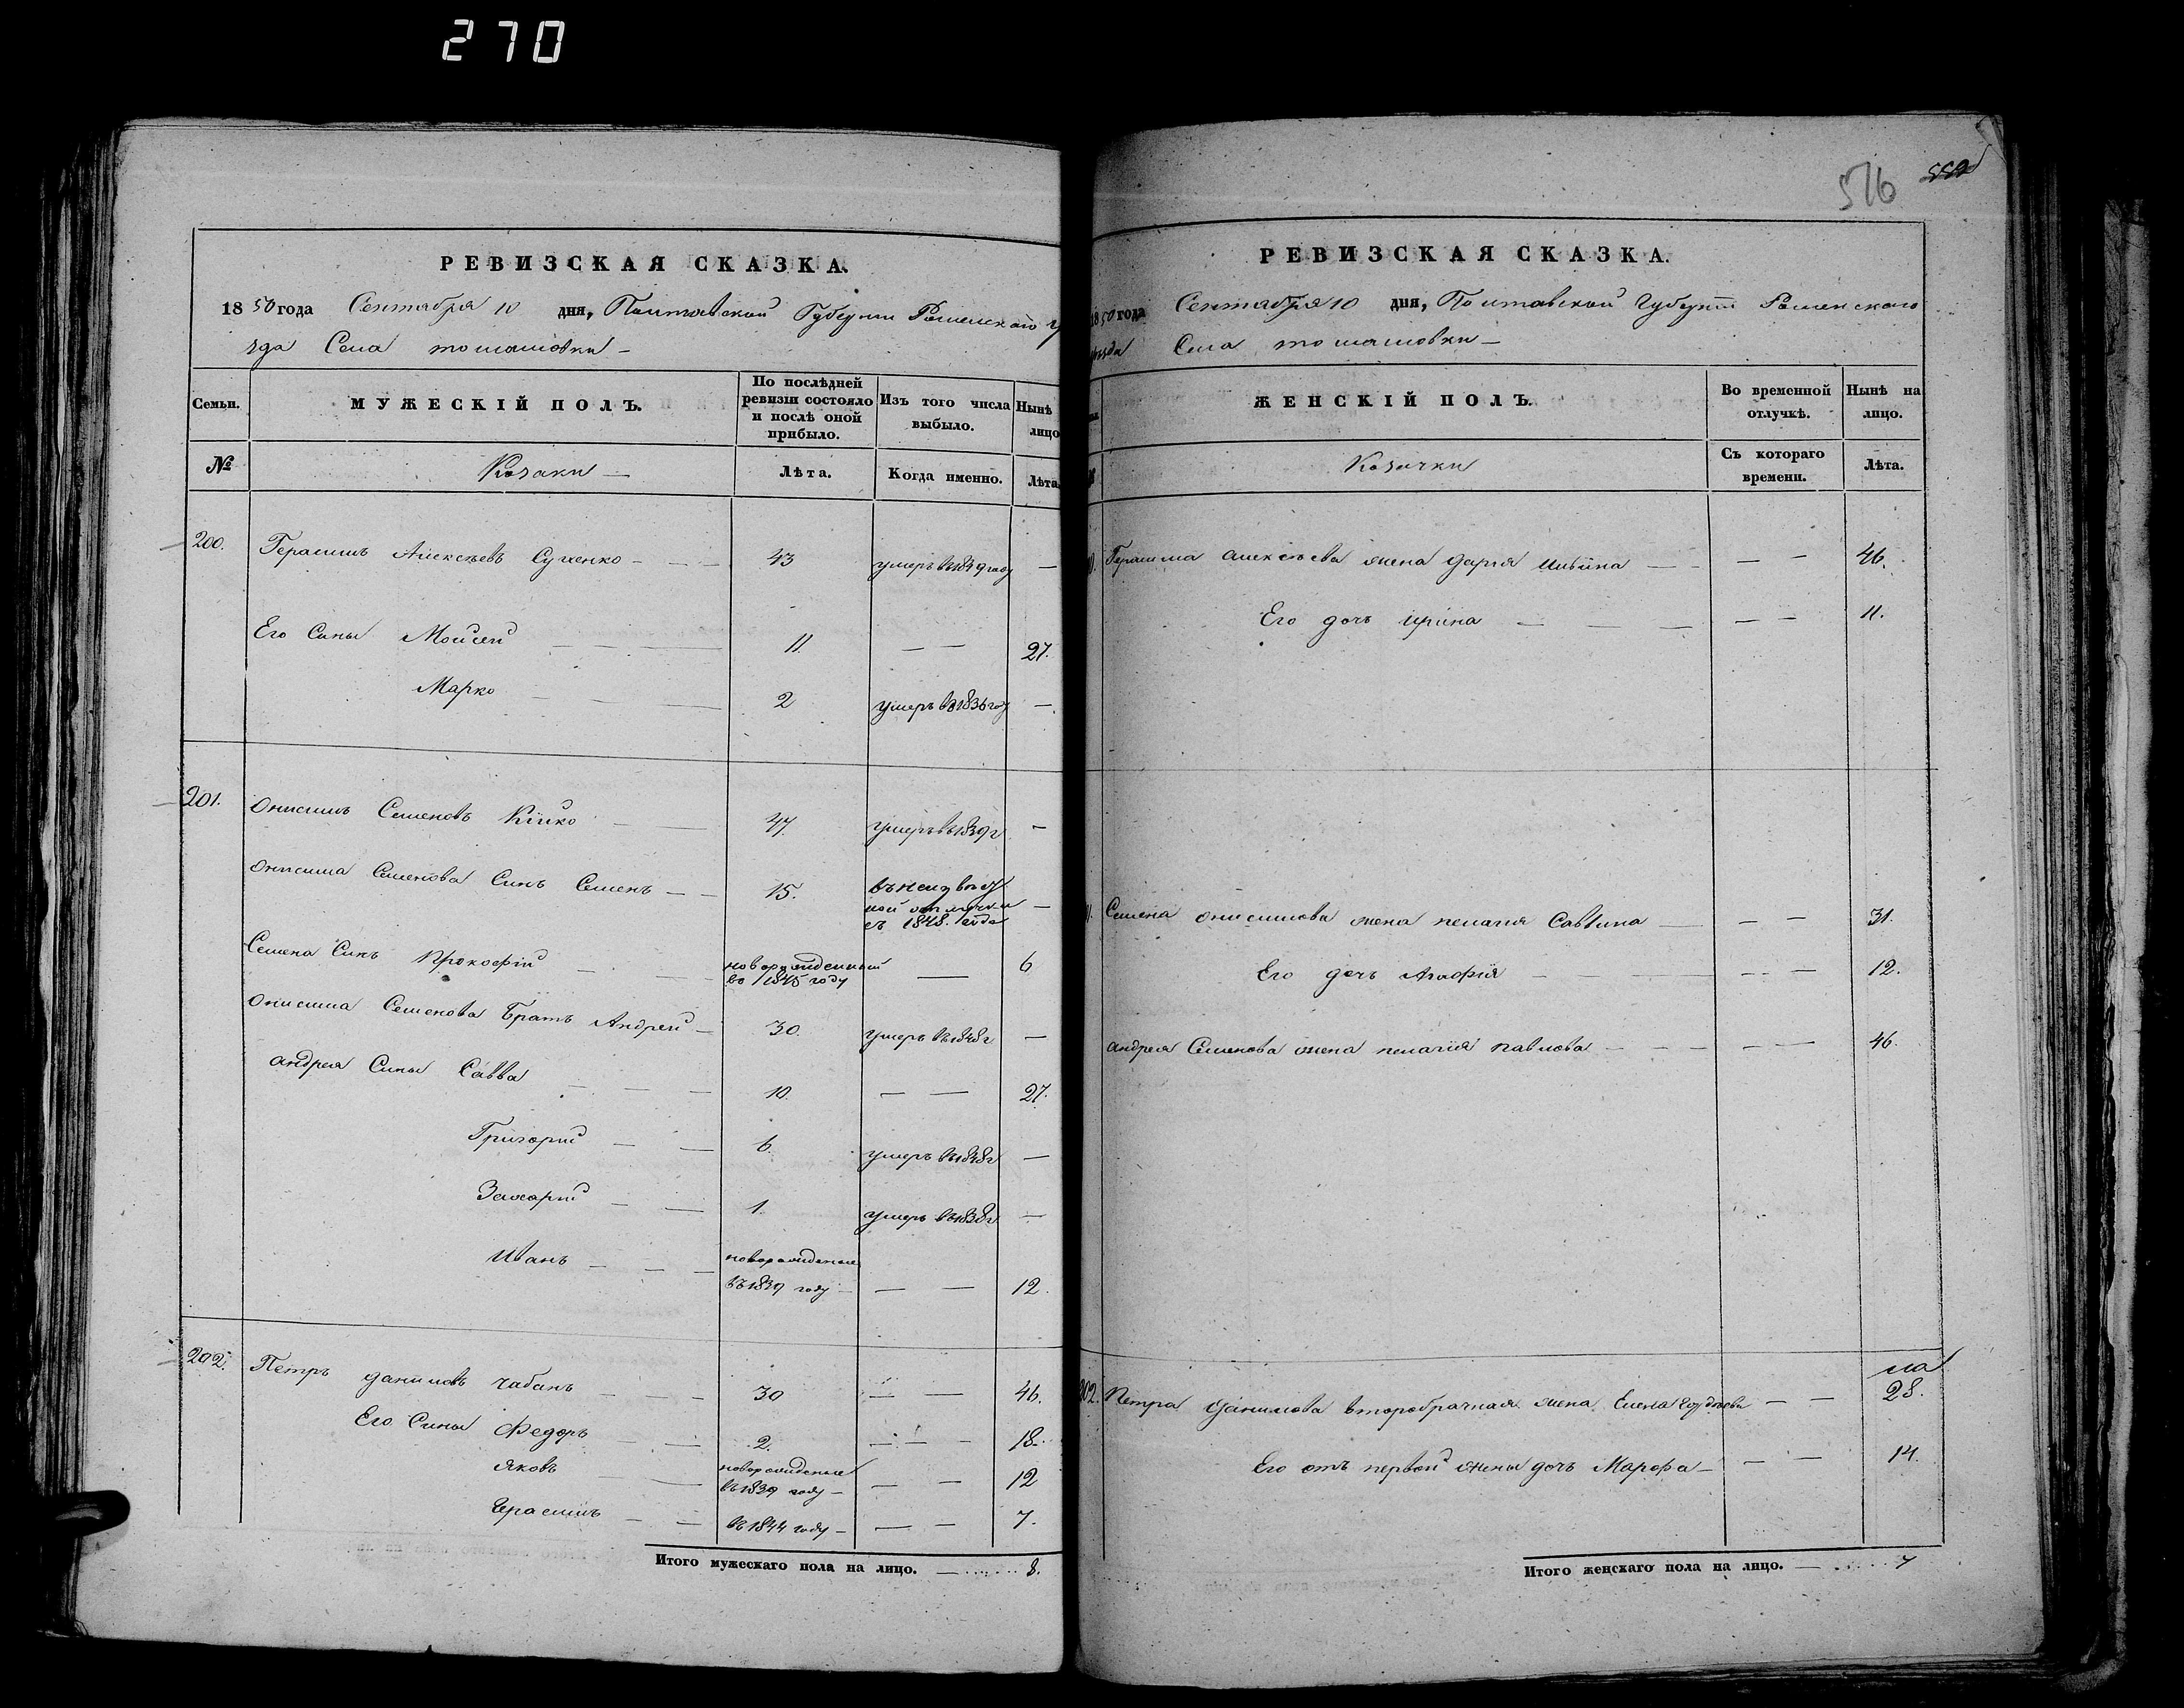 270
РЕВИЗСКАЯ СКАЗКА.
1850 года Сентября 10 дня, Полтавской Губернии Роменскаго у
зда Села томашовки —
Семьи. МУЖЕСКІЙ ПОЛЪ. По послѣдней ревизіи состояло и послѣ оной прибыло. Изъ того числа выбыло. Нынѣ лицо
№ Козаки — Лѣта. Когда именно. Лѣта.
200. Герасимъ Алексѣевъ Сушенко — 43 умеръ въ 1849 году —
Его Сины Моисей — 11. — 27.
Марко — 2 умеръ въ 1836 году —
201. Онисимъ Семеновъ Кійко — 47. умеръ въ 1839 г —
Онисима Семенова Синъ Семенъ — 15. въ неизвѣстной отлучки съ 1848. года —
Семена Синъ Прокофій — новорожденный во 1845 году — 6
Онисима Семенова Братъ Андрей — 30. умеръ въ 1848 г —
Андрея Сины Савва — 10. — 27.
Григорій — 6. умеръ въ 1848 г —
Захарій — 1. умеръ въ 1838 г —
Иванъ — новорожденые въ 1839 году — — 12.
202. Петръ даниловъ Чабанъ — 30 — 46.
Его Сины Федоръ — 2. — 18.
Яковъ — новорожденые въ 1839 году — — 12
Герасимъ — въ 1844 году — — 7.
Итого мужескаго пола на лицо. — 8.
576 552
РЕВИЗСКАЯ СКАЗКА.
1850 года Сентября 10 дня, Полтавской Губерніи Роменскаго
уезда Села томашовки —
ЖЕНСКІЙ ПОЛЪ. Во временной отлучкѣ. Нынѣ на лицо.
Козачки Съ котораго времени. Лѣта.
Герасима алексѣева жена дарія — — 46.
Его дочь ирина — — 11.
Семена онисимова жена пелагія Саввина — — 31.
Его дочь Агафія — — 12.
андрея Семенова жена пелагія павлова — — 46.
202. Петра данилова второбрачная жена Елена — — 28.
Его отъ первой жены дочь Марфа — — 14.
Итого женскаго пола на лицо. — 7